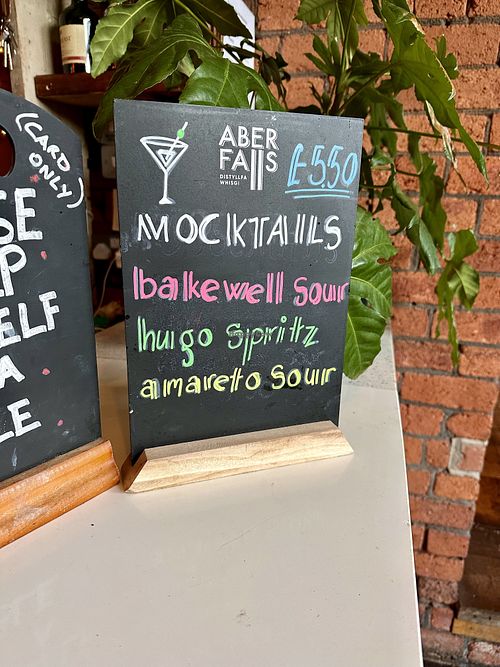 (CARD
ONLY)
SE
P
ELF
A
LE
ABER
FAllS
DISTYLLFA
WHISGI
£5.50
MOCKTAILS
bakewell Sour
hugo Spritz
amaretto Sour